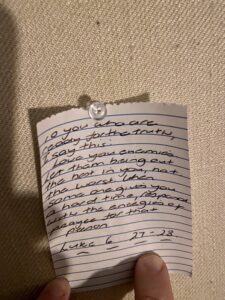 To you who are
ready for the truth,
I say this:
Love you enemies
let them bring out
the best in you, not
the worst. When
some one gives you
a hard time, respond
with the energies of
prayer for that
person
Luke 6 27-28